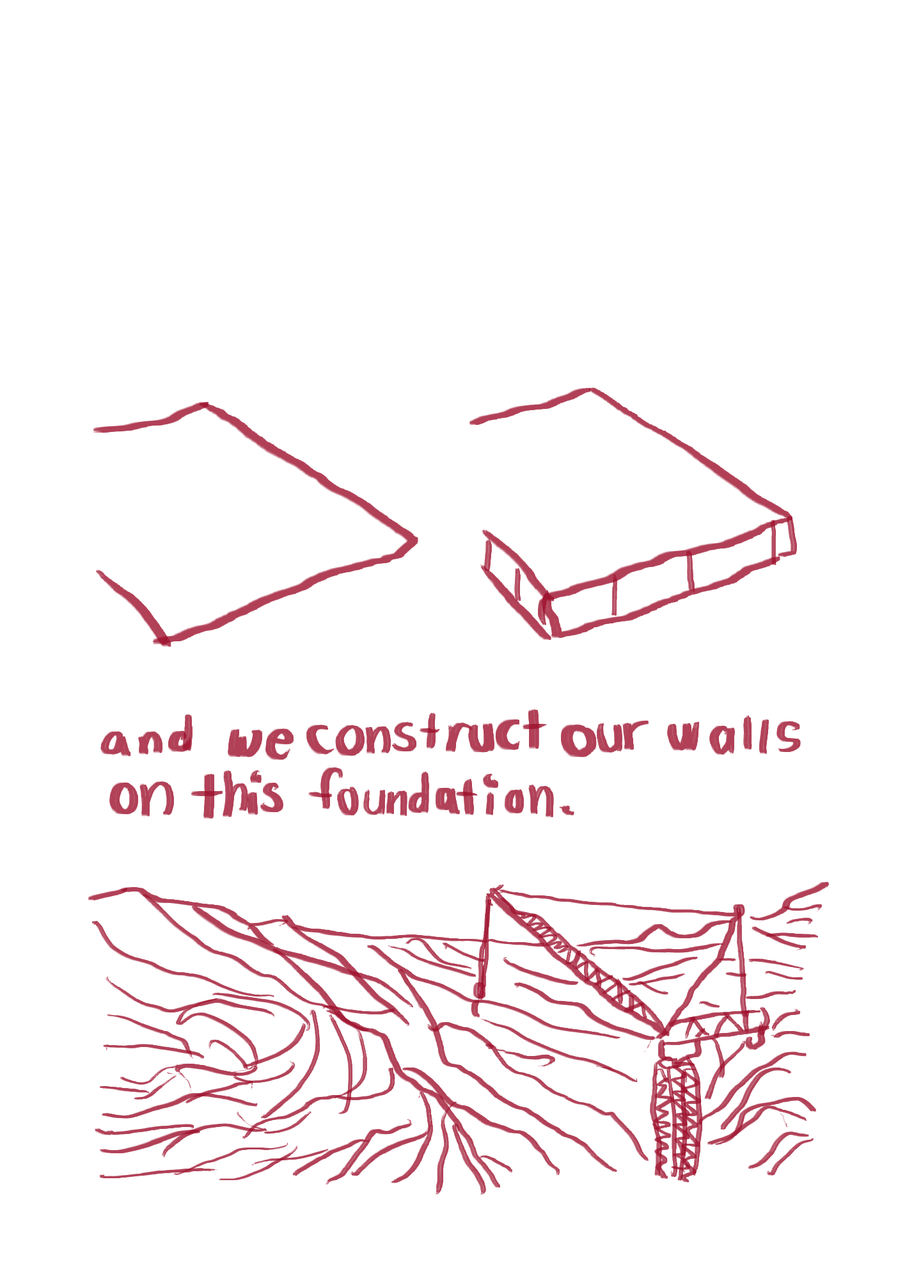 and we construct our walls
on this foundation.